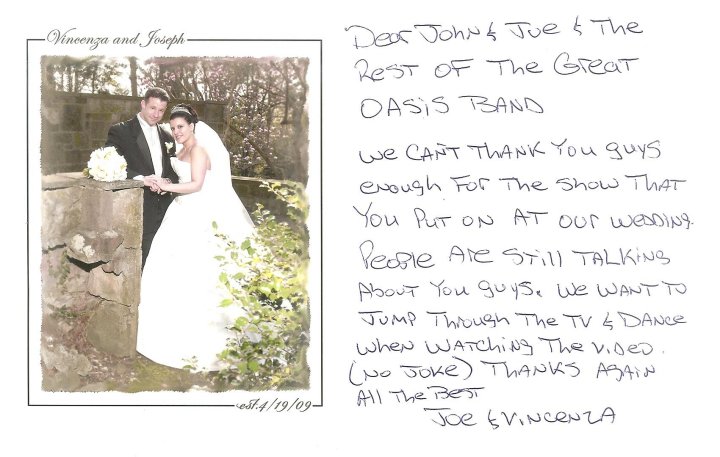 Vincenza and Joseph
est. 4/19/09
Dear John & Joe & The
Rest OF The Great
OASIS BAND
We CAN'T THANK You guys
enough For The Show THAT
You Put on AT our wedding.
People Are Still TALKING
About You guys. We WANT TO
Jump Through The TV & DANCE
when WATCHING The video.
(No Joke) THANKS AGAIN
All The Best
Joe & Vincenza